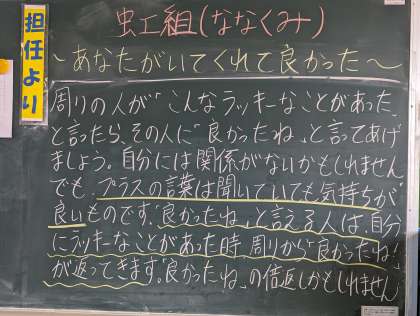 担任より
虹組(ななくみ)
〜あなたがいてくれて良かった〜
周りの人が「こんなラッキーなことがあった」
と言ったら、その人に「良かったね」と言ってあげ
ましょう。自分には関係がないかもしれません
でも、プラスの言葉は聞いていても気持ちが
良いものです。「良かったね」と言える人は、自分
にラッキーなことがあった時、周りから「良かったね」
が返ってきます。「良かったね」の倍返しかもしれません